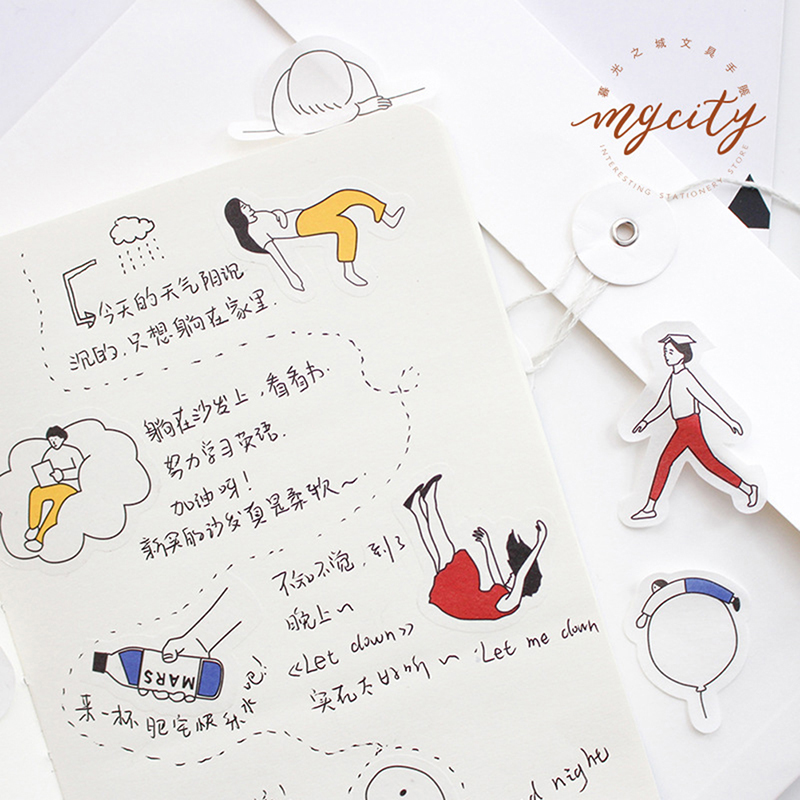 暮光之城文具手账
mycity
INTERESTING STATIONERY STORE
今天的天气阴沉
沉的,只想躺在家里.
躺在沙发上,看看书.
努力学习英语.
加油呀!
新买的沙发真是柔软~
不知不觉,到了
晚上~
《Let down》
实在太好听~ Let me down
MARS
来一杯肥宅快乐水吧!
night